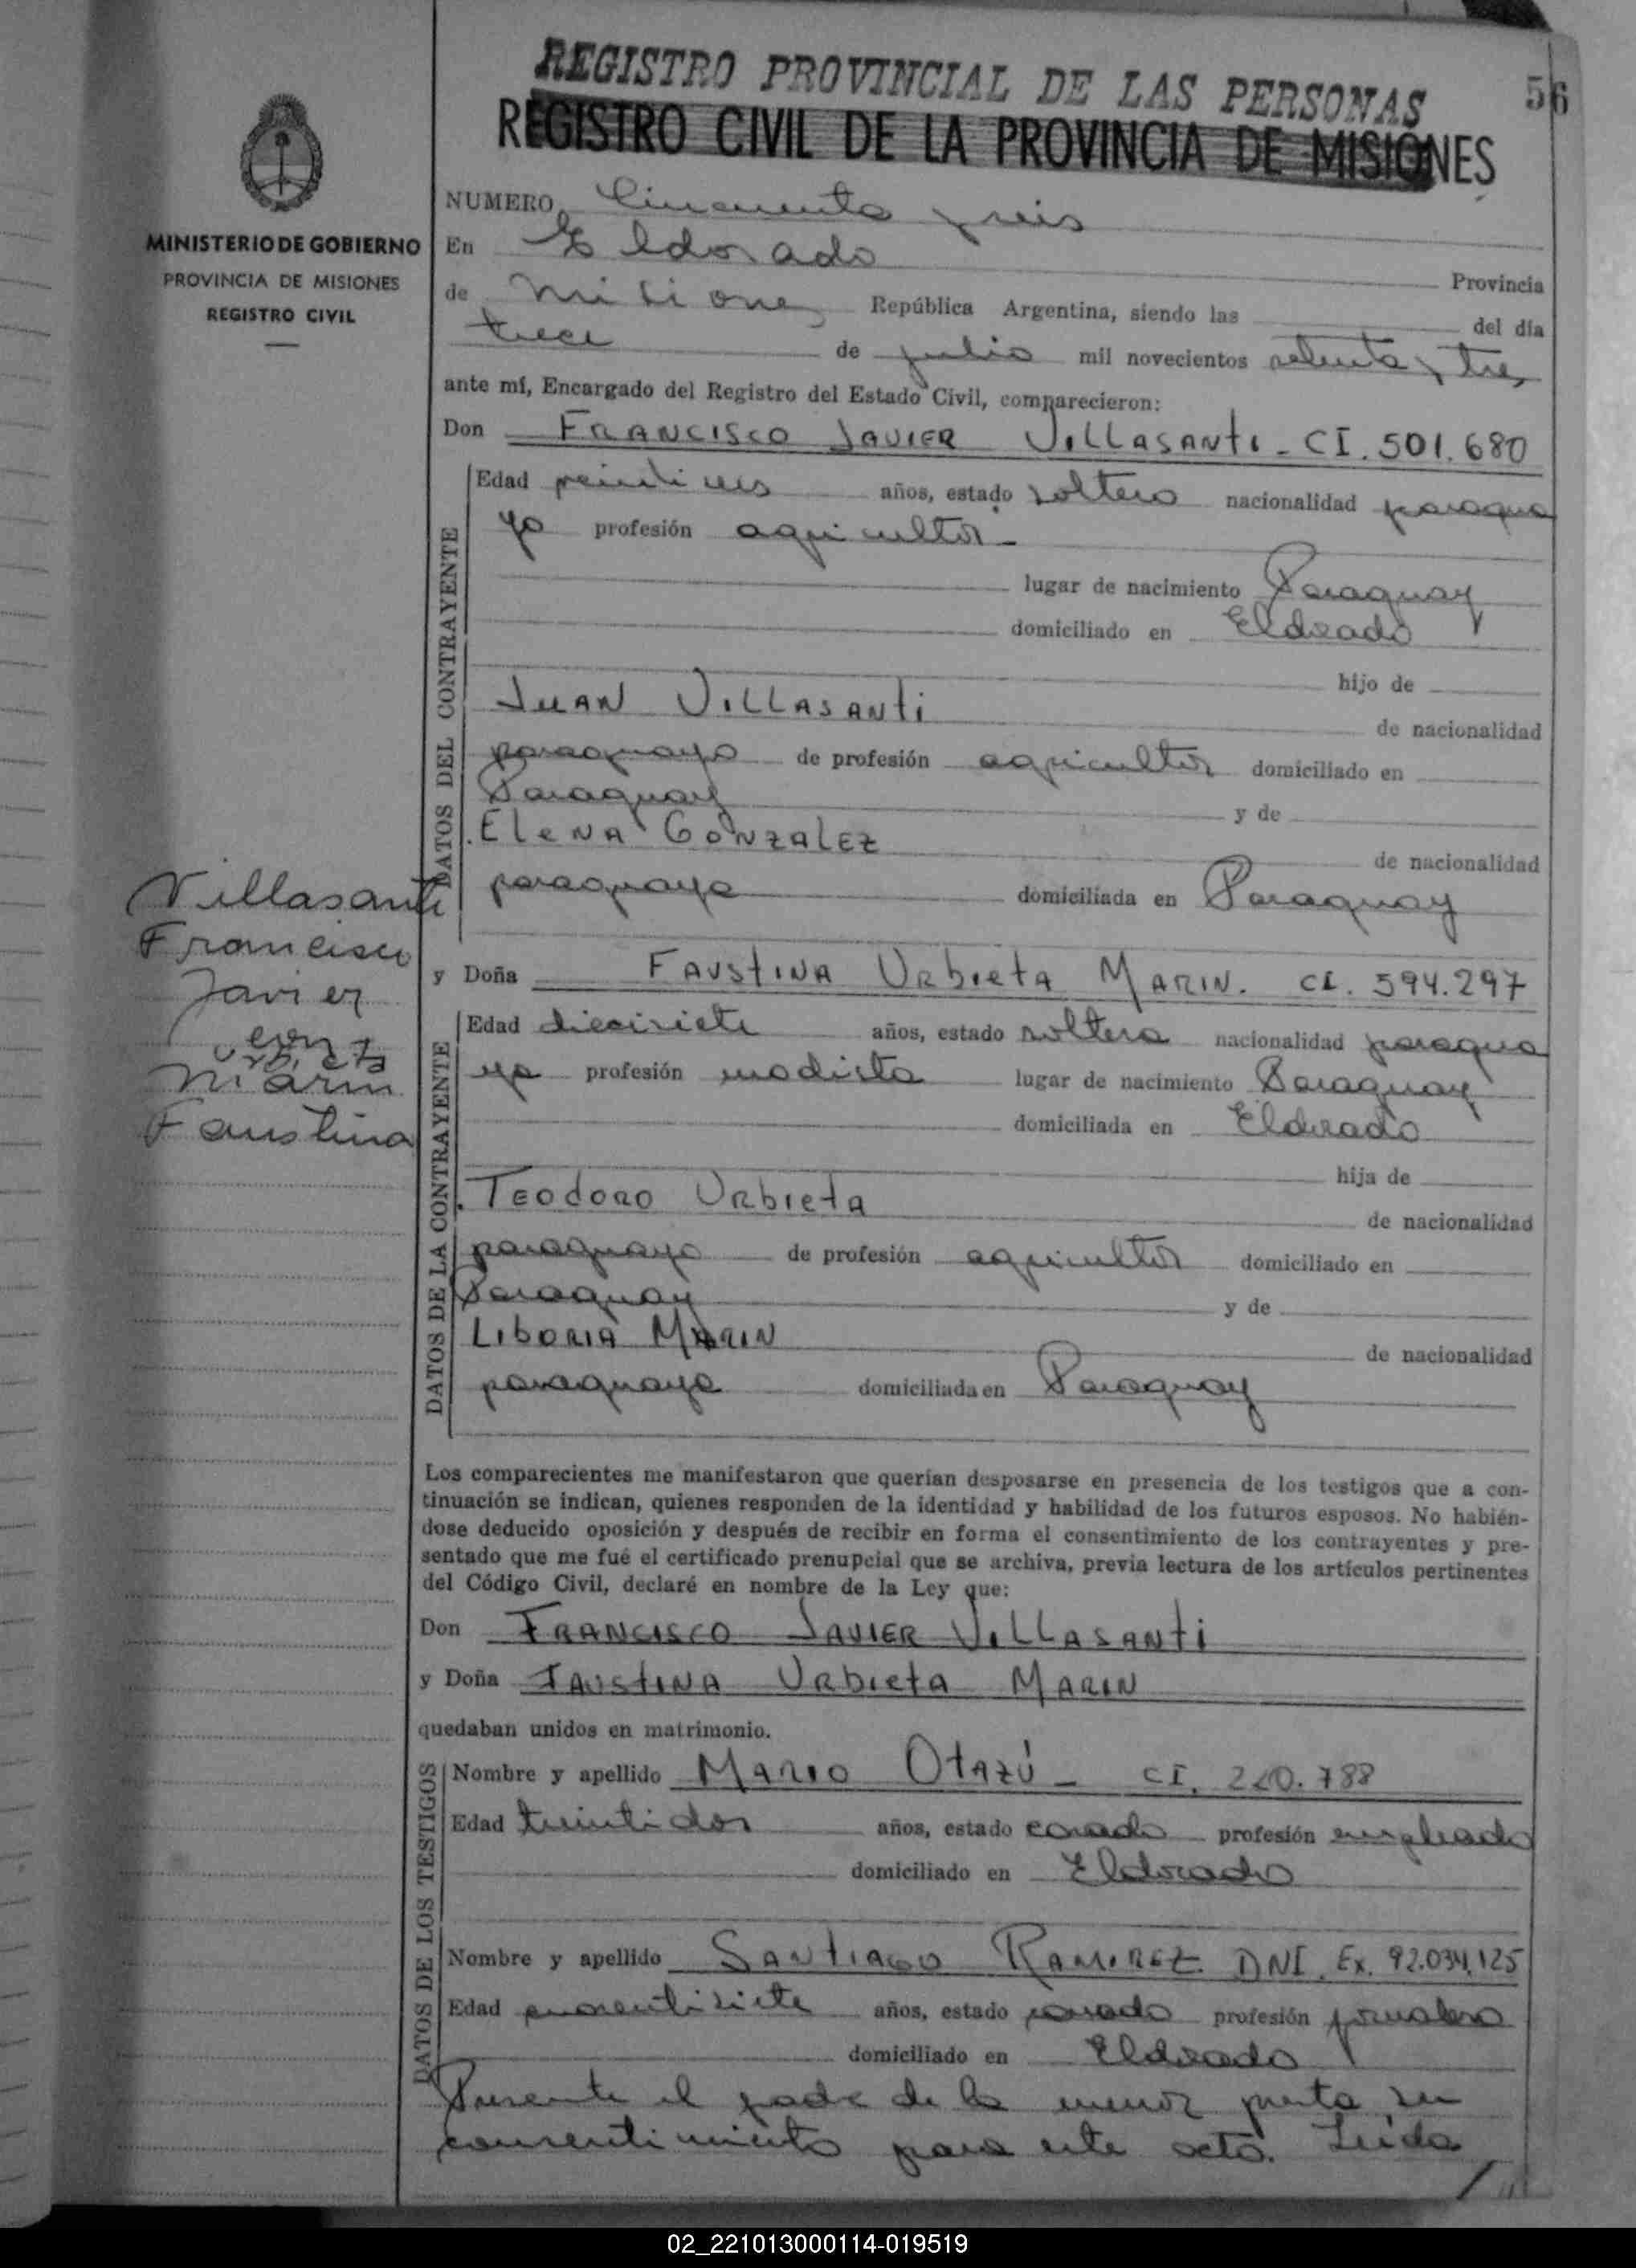 REGISTRO PROVINCIAL DE LAS PERSONAS
56
REGISTRO CIVIL DE LA PROVINCIA DE MISIONES
MINISTERIO DE GOBIERNO
PROVINCIA DE MISIONES
REGISTRO CIVIL
NUMERO Cincuenta y seis
En Eldorado Provincia
de Misiones República Argentina, siendo las del día
trece de julio mil novecientos setenta y tres
ante mí, Encargado del Registro del Estado Civil, comparecieron:
Don FRANCISCO JAVIER VILLASANTI - CI. 501.680
DATOS DEL CONTRAYENTE
Edad años, estado soltero nacionalidad paragua
yo profesión agricultor -
lugar de nacimiento Paraguay
domiciliado en Eldorado
hijo de
JUAN VILLASANTI
de nacionalidad
paraguayo de profesión agricultor domiciliado en
Paraguay y de
ELENA GONZALEZ
de nacionalidad
paraguaya domiciliada en Paraguay
Villasanti
Francisco
Javier
con
Urbieta
Marin
Faustina
y Doña FAUSTINA URBIETA MARIN. CI. 594.297
DATOS DE LA CONTRAYENTE
Edad diecisiete años, estado soltera nacionalidad paragua
ya profesión modista lugar de nacimiento Paraguay
domiciliada en Eldorado
hija de
TEODORO URBIETA
de nacionalidad
paraguayo de profesión agricultor domiciliado en
Paraguay y de
LIBORIA MARIN
de nacionalidad
paraguaya domiciliada en Paraguay
Los comparecientes me manifestaron que querían desposarse en presencia de los testigos que a con-
tinuación se indican, quienes responden de la identidad y habilidad de los futuros esposos. No habién-
dose deducido oposición y después de recibir en forma el consentimiento de los contrayentes y pre-
sentado que me fué el certificado prenupcial que se archiva, previa lectura de los artículos pertinentes
del Código Civil, declaré en nombre de la Ley que:
Don FRANCISCO JAVIER VILLASANTI
y Doña FAUSTINA URBIETA MARIN
quedaban unidos en matrimonio.
DATOS DE LOS TESTIGOS
Nombre y apellido MARIO OTAZÚ - CI. 220.788
Edad treintidos años, estado casado profesión empleado
domiciliado en Eldorado
Nombre y apellido SANTIAGO RAMIREZ. DNI. Ex. 92.034.125
Edad cuarentisiete años, estado casado profesión jornalero
domiciliado en Eldorado
Presente el padre de la menor presta su
consentimiento para este acto. Leída
02_221013000114-019519